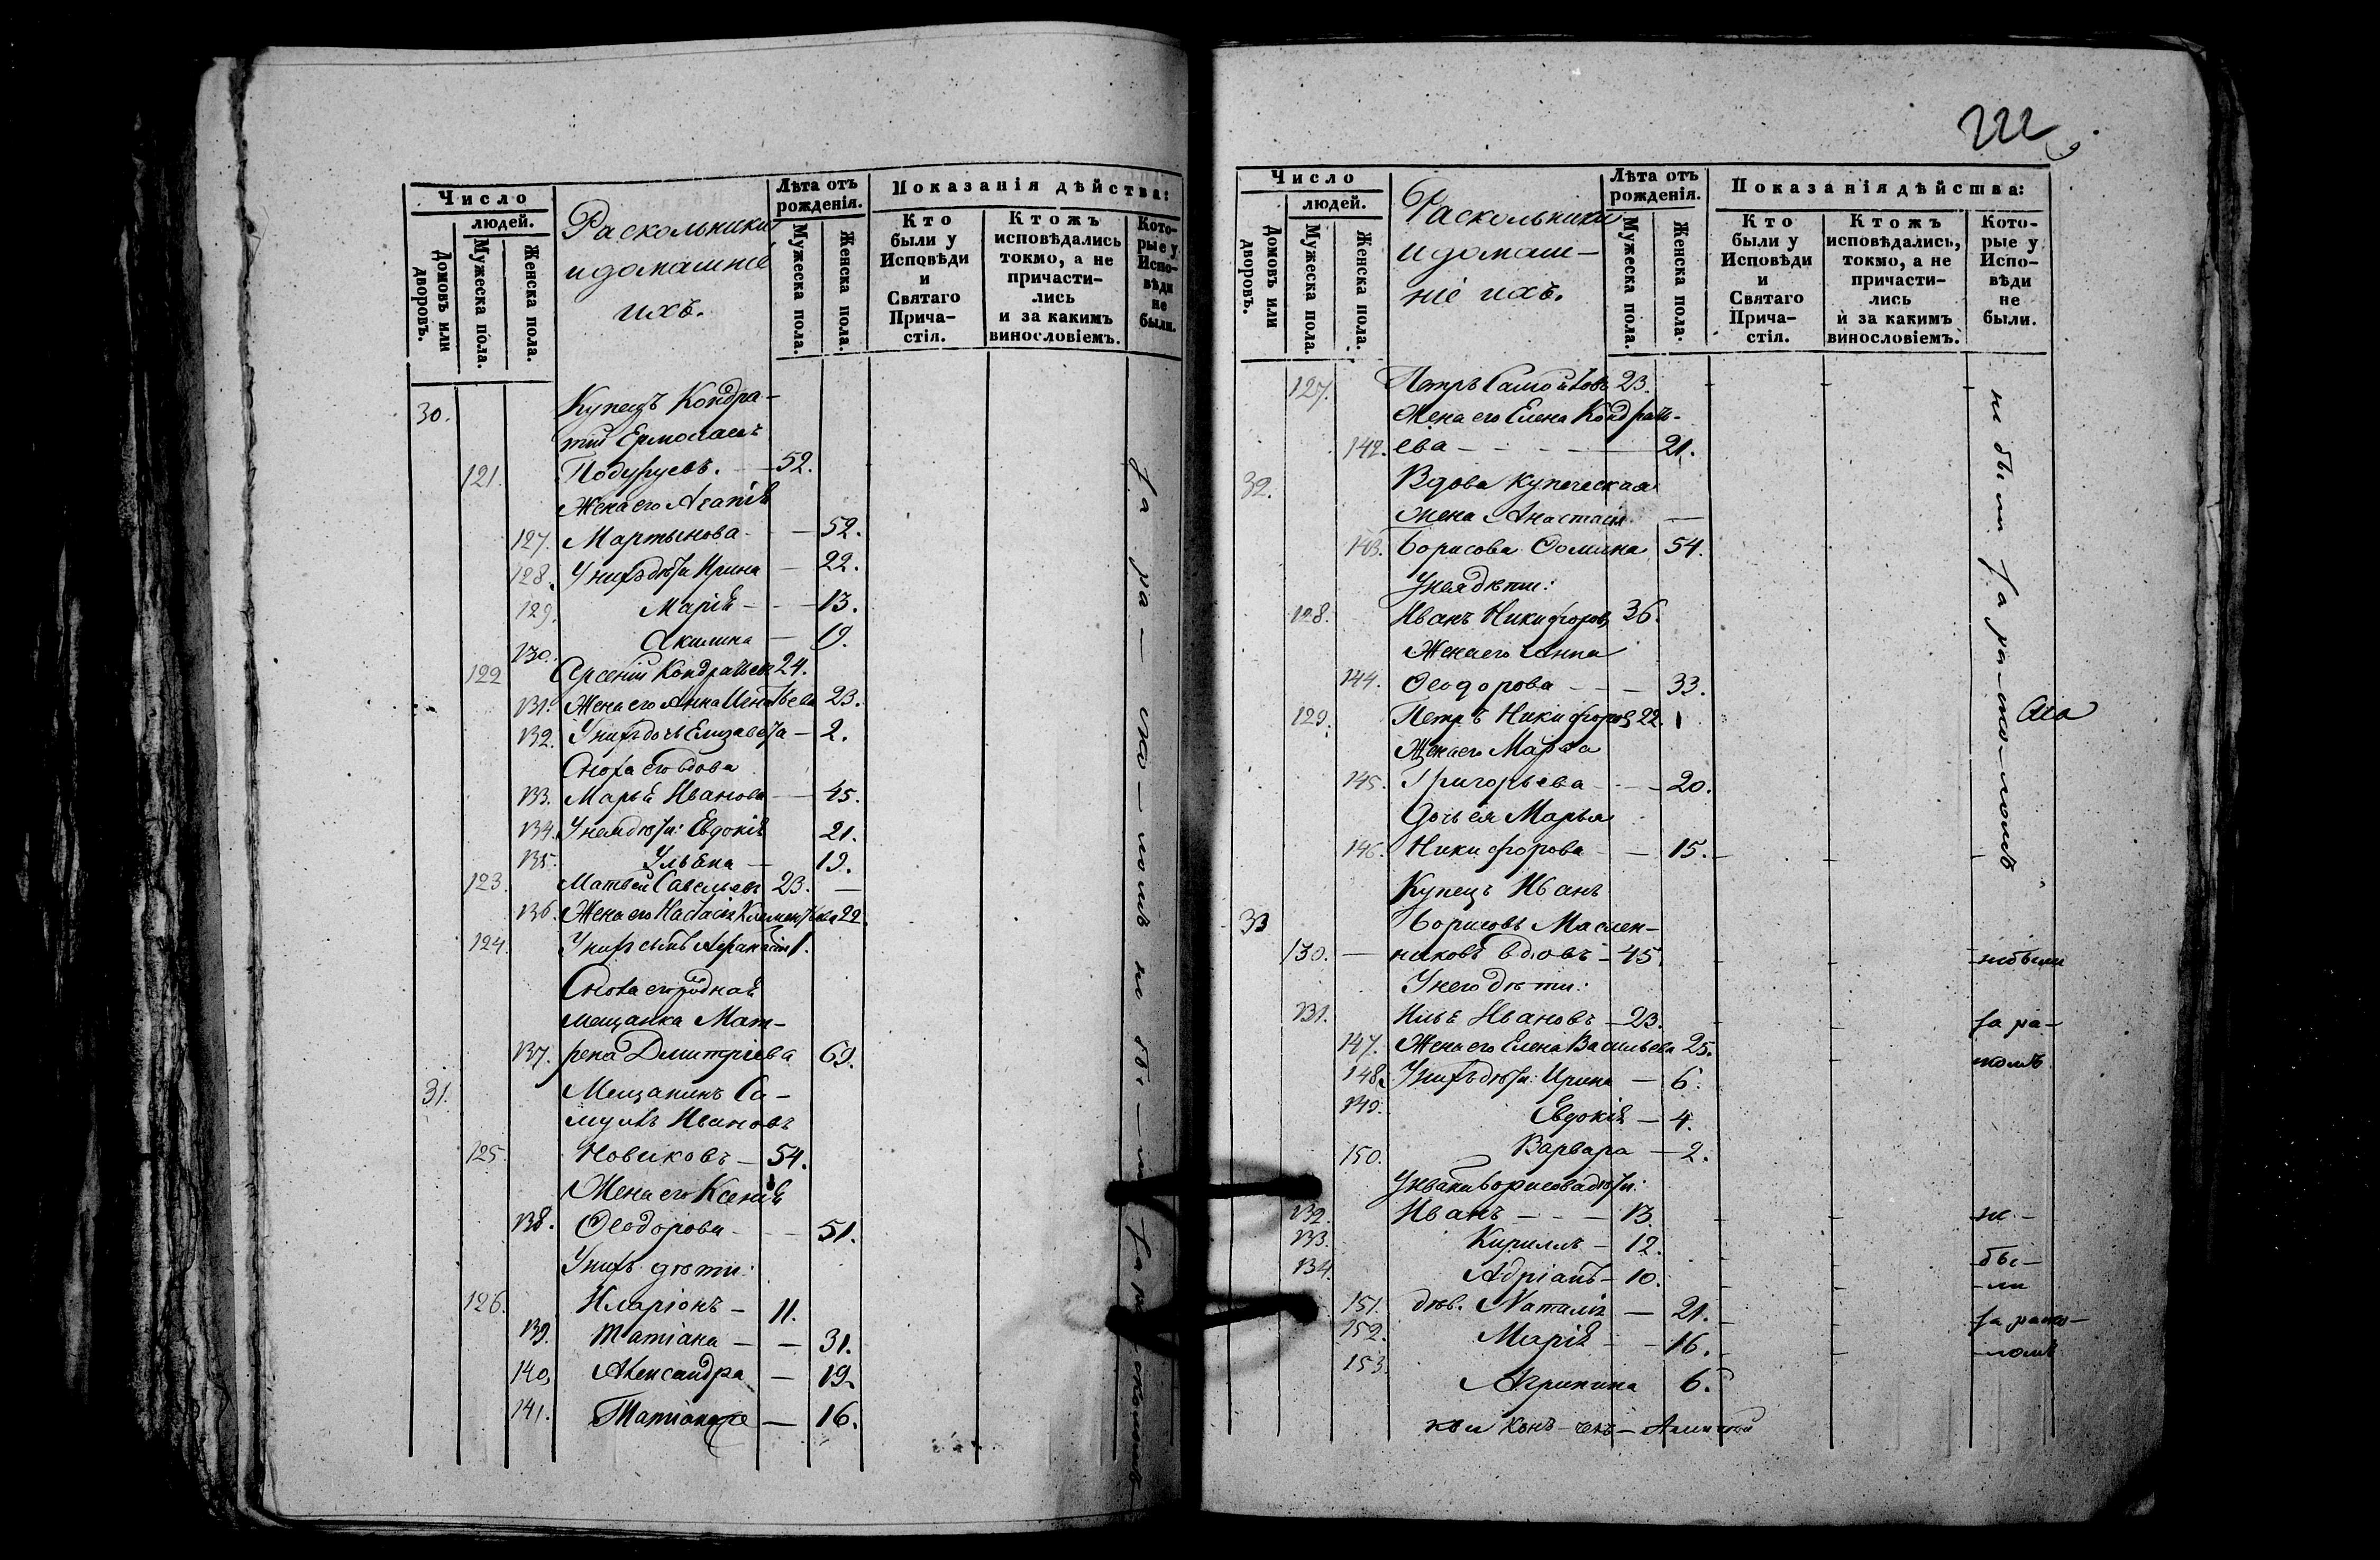 Число
людей.
Домовъ или дворовъ.
Мужеска пола.
Женска пола.
Раскольники
и домашніе
ихъ.
Лѣта отъ
рожденія.
Мужеска пола.
Женска пола.
Показанія дѣйства:
Кто
были у
Исповѣди
и
Святаго
Прича-
стія.
Ктожъ
исповѣдались
токмо, а не
причасти-
лись
и за какимъ
винословіемъ.
Кото-
рые у
Испо-
вѣди
не
были.
30. Купецъ Кондра-
тій Ермолаевъ
121. 52.
Жена его Агапія
127. Мартынова - 52.
128. У нихъ дѣти Ирина - 22.
129. Марія - 13.
130. Акилина - 9.
122 Арсеній Кондратьевъ 24.
131. Жена его Анна 23.
132. У нихъ дочь Елизавета - 2.
Сноха его вдова
133. Марья Иванова - 45.
134. У нея дѣти: Евдокія 21.
135. Ульяна - 19.
123. Матвей Савельевъ 23. -
136. Жена его Настасія Клементьева 22.
124. У нихъ сынъ 1.
Сноха его родная
мещанка Мат-
137. рена Дмитріева 69.
31. Мещанинъ Са-
муилъ Ивановъ
125. Новиковъ - 54.
Жена его Ксенія
138. Ѳеодорова - 51.
У нихъ дѣти:
126. Иларіонъ - 11.
139. Татіана - 31.
140. Александра - 19.
141. Татіана - 16.
за рас-ко-ломъ не бы-ли за расколомъ
Число
людей.
Домовъ или дворовъ.
Мужеска пола.
Женска пола.
Раскольники
и домаш-
ніе ихъ.
Лѣта отъ
рожденія.
Мужеска пола.
Женска пола.
Показанія дѣйства:
Кто
были у
Исповѣди
и
Святаго
Прича-
стія.
Ктожъ
исповѣдались,
токмо, а не
причасти-
лись
и за какимъ
винословіемъ.
Кото-
рые у
Испо-
вѣди
не
были.
127. Петръ Самойловъ 23.
Жена его Елена Кондрать-
142. ева - 21.
32. Вдова купеческая
жена Анастасія
143. Борисова Ѳомина 54.
У нея дѣти:
128. Иванъ Никифоровъ 36.
Жена его Анна
144. Ѳеодорова - 33.
129. Петръ Никифоровъ 22.
Жена его Марѳа
145. Григорьева - 20.
Дочь ея Марья
146. Никифорова - 15.
не были за рас-ко-ломъ
Купецъ Иванъ
33 Борисовъ Маслен-
130. никовъ вдовъ - 45. не были
У него дѣти:
131. Илья Ивановъ - 23. за ра-
147. Жена его Елена Васильева 25. коломъ
148. У нихъ дѣти: Ирина - 6.
149. Евдокія - 4.
150. Варвара - 2.
У Ивана Борисова дѣти:
132. Иванъ - 13. не -
133. Кириллъ - 12. бы-
134. Адріанъ - 10. -ли
151. дѣв. Наталія - 21. за раско-
152. Марія - 16. -ломъ
153. Агрипина 6.